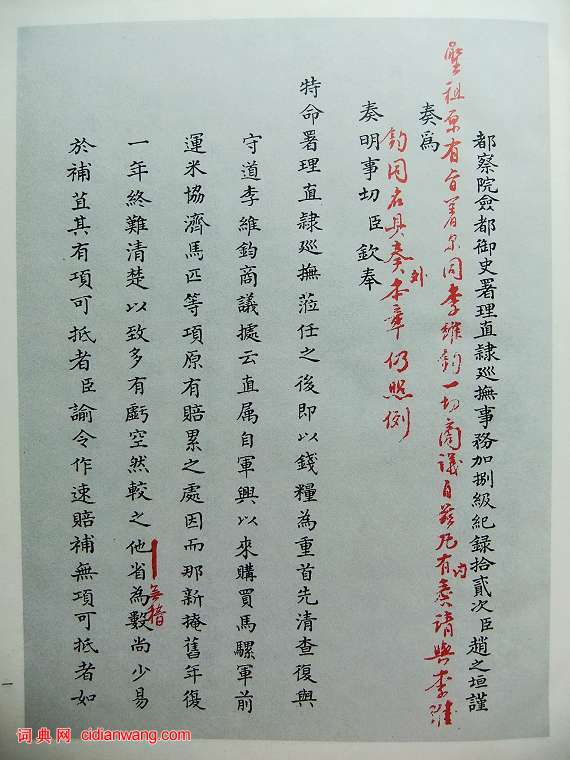 都察院僉都御史署理直隷巡撫事務加捌級紀録拾貳次臣趙之垣謹
聖祖原有旨著尔同李維鈞一切商議自茲凡有内奏請與李維
奏為
鈞同名具奏外本章仍照例
奏明事切臣欽奉
特命署理直隷巡撫蒞任之後即以錢糧為重首先清查復與
守道李維鈞商議據云直属自軍興以來購買馬騾軍前
運米協濟馬匹等項原有賠累之處因而那新掩舊年復
一年終難清楚以致多有虧空然較之他省為數尚少易
無稽
於補苴其有項可抵者臣諭令作速賠補無項可抵者如
一
词典网 cidianwang.com